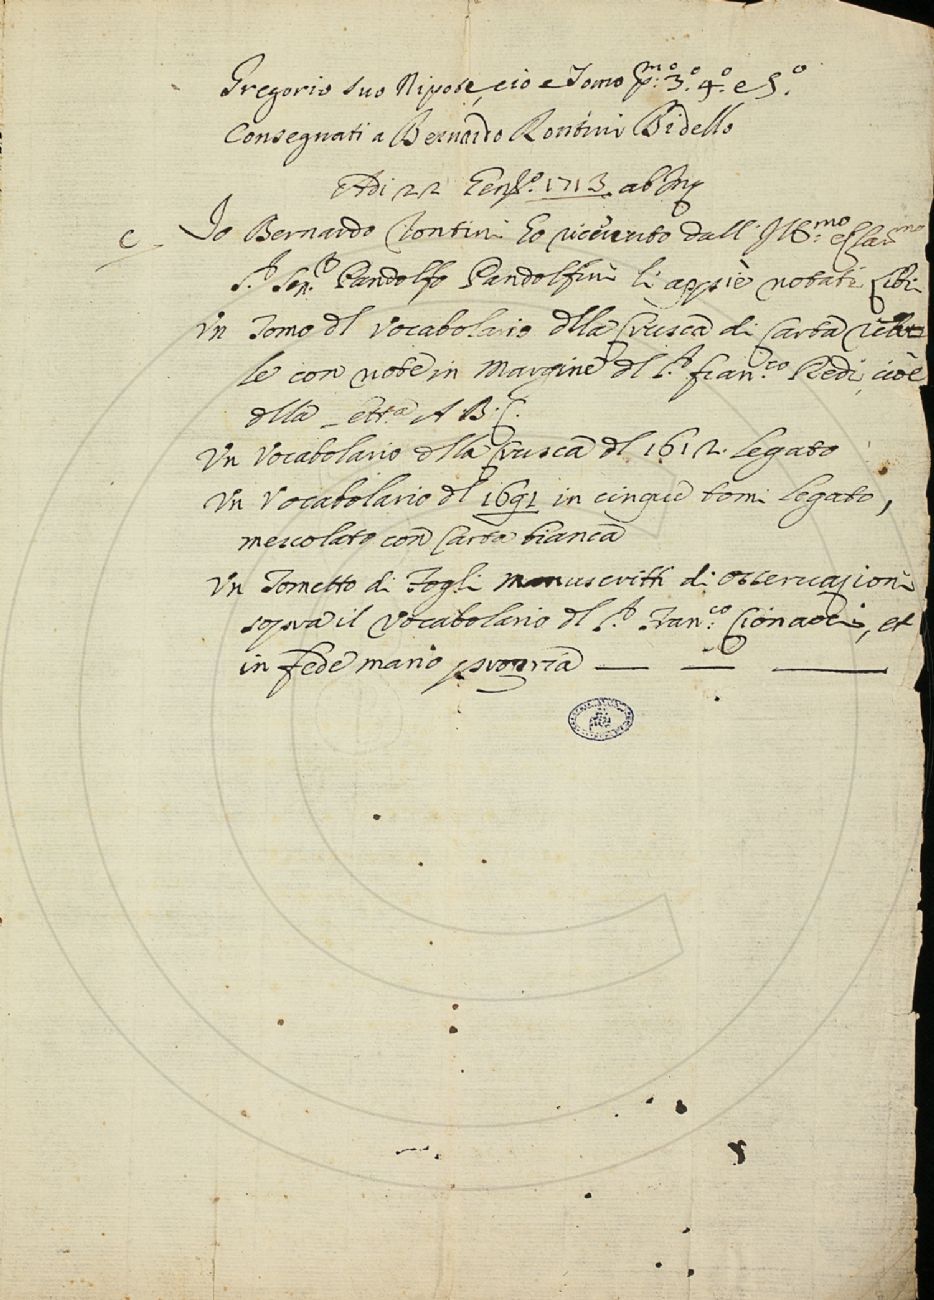 Gregorio suo Nipote, cioe Tomo p.mo 3.o 4.o e 5.o
Consegnati a Bernardo Rontini Bidello
Adi 22 Genn.o 1713. ab Inc
c Io Bernardo Rontini ho riceuuto dall' Ill.mo e Clar.mo
S.r Sen.re Pandolfo Pandolfini li appiè notati Libri
Un Tomo dl Vocabolario dlla Crusca di Carta
le con note in Margine dl S.r fran.co Redi, cioè
dlla A B. C.
Un Vocabolario dlla Crusca dl 1612. Legato
Un Vocabolario dl 1691 in cinque tomi Legato,
mescolato con Carta bianca
Un Tometto di Fogli manuscritti di osseruazioni
sopra il Vocabolario dl S.r Fran.co Cionacci, et
in fede mano propria